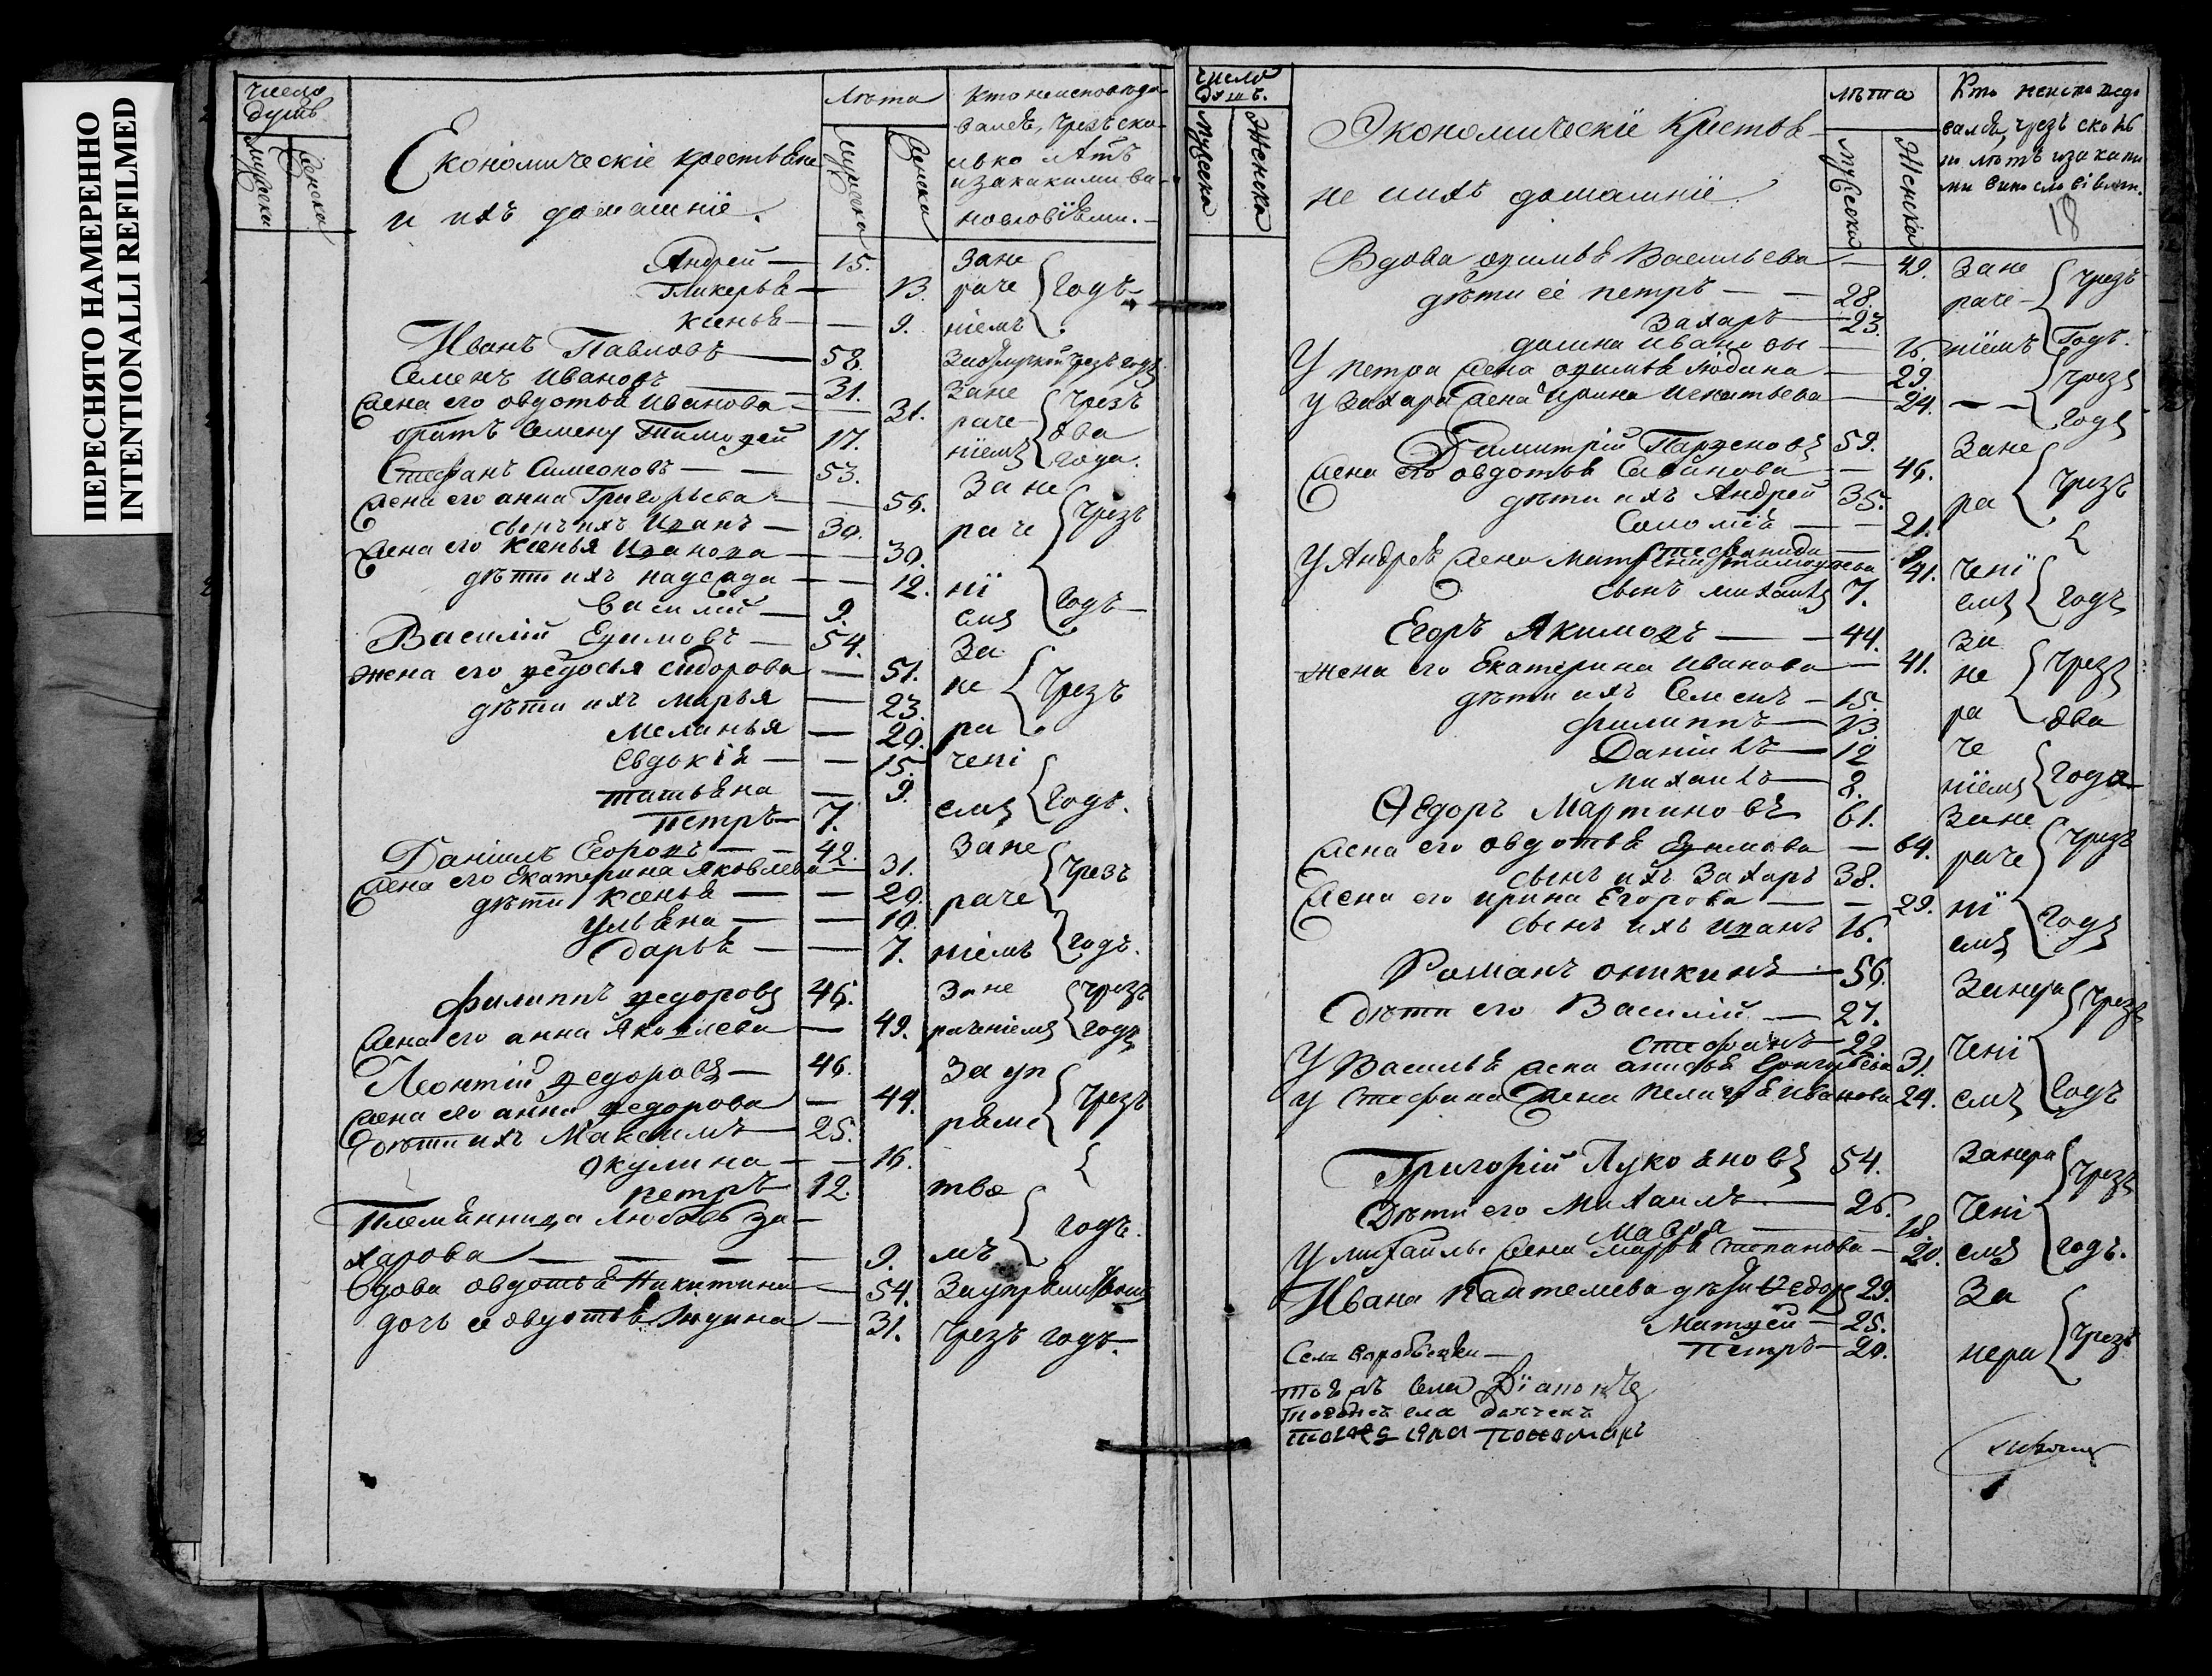 ПЕРЕСНЯТО НАМЕРЕННО
INTENTIONALLI REFILMED
число душъ
мужеска женска
Економическіе крестьяне
и ихъ домашніе.
лѣта
мужеска женска
кто неисповѣда
вался, чрезъ ско
лько лѣтъ
и за какими ви
нословіями.
Андрей — 15. Зане
Гликерья — 13. раче годъ
Ксенья — 9. ніемъ
Иванъ Павловъ — 58. чрезъ годъ
Семенъ Ивановъ — 31. Зане
жена его овдотья Иванова — 31. раче чрезъ два
братъ Семену Тимоѳей 17. ніемъ года.
Стефанъ Симеоновъ — 53. Зане
жена его анна Григорьева — 56. раче чрезъ
сынъ ихъ Иванъ — 30.
жена его Ксенья Иванова — 30.
дѣти ихъ надежда — 12. ні
Василій — 9. емъ годъ
Василій Еѳимовъ — 54. За
жена его ѳедосья Сидорова — 51. не чрезъ
дѣти ихъ Марья — 23.
Меланья — 20. ра
Евдокія — 15. чені
татьяна — 9. емъ годъ.
петръ — 7.
Даніилъ Егоровъ — 42. Зане
жена его Екатерина Яковлева — 31. чрезъ
дѣти Ксенья — 20. раче
Ульяна — 10.
Дарья — 7. ніемъ годъ.
филиппъ ѳедоровъ 46. Зане чрезъ
жена его анна Яковлева — 49. раченіемъ годъ
Леонтій ѳедоровъ — 46. За уп
жена его анна ѳедорова — 44. ряме чрезъ
дѣти ихъ Максимъ 25.
Окулина — 16.
петръ 12. тво
племянница Любовь За-
харова — 9. мъ годъ.
Вдова овдотья Никитина — 54. За упрямство
дочь ея овдотья Юдина — 31. чрезъ годъ.
число душъ.
мужеска женска
Экономическіе Крестья-
не ихъ домашніе.
лѣта
мужеска Женска
Кто неисповедо
вался, чрезъ сколь
ко лѣтъ и за каки
ми винословіями.
Вдова Васильева — 49. Зане
дѣти её петръ — 28. раче чрезъ
Захаръ — 23.
домна Ивановы — 16. ніемъ годъ.
У петра жена Юдина — 29. чрезъ
у Захара жена Ирина Игнатьева — 24. — — годъ
Димитрій Парѳеновъ 59. Зане
жена его овдотья Савинова — 46.
дѣти ихъ Андрей 35. ра чрезъ
Соломія — 21.
Стефанида —
У Андрея жена Тимоѳеева 41. чені
сынъ михаилъ 7. емъ годъ
Егоръ Якимовъ — 44. За
жена его Екатерина Иванова — 41. не чрезъ
дѣти ихъ Семенъ — 15.
филиппъ — 13. ра два
Даніилъ — 12 че
михаилъ — 8. ніемъ года
Ѳедоръ Мартиновъ 61. Зане
жена его овдотья Еѳимова — 64. раче чрезъ
сынъ ихъ Захаръ 38.
жена его ирина Егорова — 29. ні
сынъ ихъ Иванъ 16. емъ годъ
Романъ оникинъ — 56. Занера чрезъ
дѣти его Василій — 27.
Стефанъ — 22. чені
У Василья жена анисья Григорьева 31.
у Стефана жена Пелагея Иванова 24. емъ годъ
Григорій Лукьяновъ 54. Занера чрезъ
Дѣти его Михаилъ — 26. чені
Мавра — 18.
У михайлы жена Марѳа Степанова — 20. емъ годъ.
Ивана Пантелеева дѣти Ѳедоръ 29. За
Матѳей — 25.
петръ — 20. нера чрезъ
Села
тоежъ села
тогожъ села дячекъ
тогожъ села Пономарь